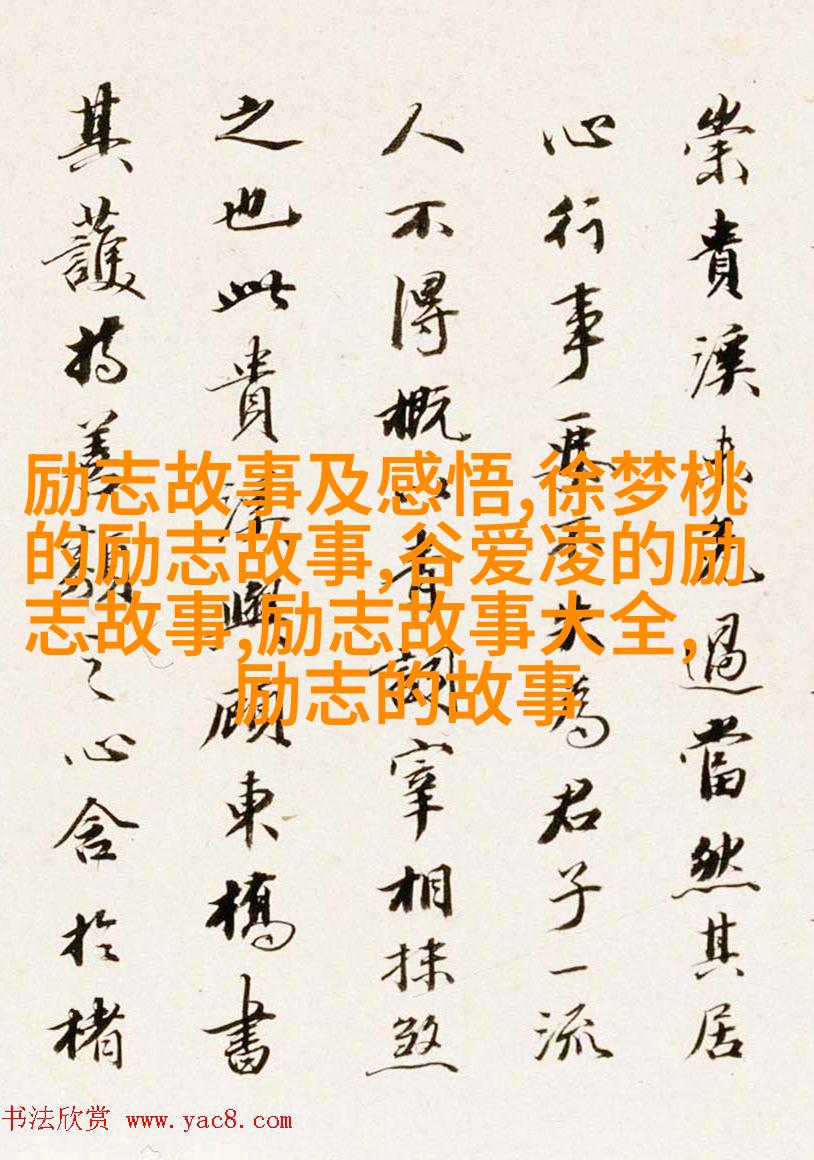 崇貴溪未免過當然其居
心行事要不失為君子一流
人不得概以青詞宰相抹煞
之也此貴溪與顧東橋書
其護持善類之心含於楮
励志故事及感悟,徐梦桃
的励志故事,谷爱凌的励
志故事,励志故事大全,
励志的故事
书法欣赏 www.yac8.com